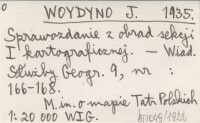 WOYDYNO J. 1935.
Sprawozdanie z obrad sekcji
I kartograficznej. — Wiad.
Służby Geogr. 9, nr :
166-168.
M.in. o mapie Tatr Polskich
1: 20 000 WIG.